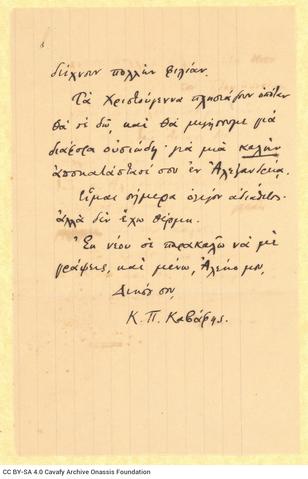 δείχνουν πολλὴν φιλίαν.
Τὰ Χριστούγεννα πλησιάζουν ὁπόταν
θὰ σὲ δῶ, καὶ θὰ μιλήσουμε γιὰ
διάφορα οὐσιώδη· γιὰ μιὰ καλὴν
ἀποκατάστασί σου ἐν Ἀλεξανδρείᾳ.
Εἶμαι σήμερα ὀλίγον ἀδιάθετος·
ἀλλὰ δὲν ἔχω θέρμη.
Ἐκ νέου σὲ παρακαλῶ νὰ μὲ
γράψεις, καὶ μένω, Ἀλέκο μου,
Δικός σου,
Κ. Π. Καβάφης.
CC BY-SA 4.0 Cavafy Archive Onassis Foundation